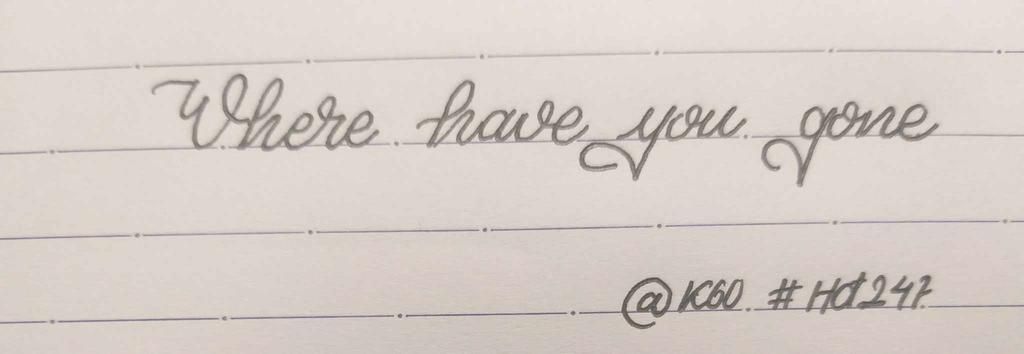 Where have you gone
@K60 #Hd247